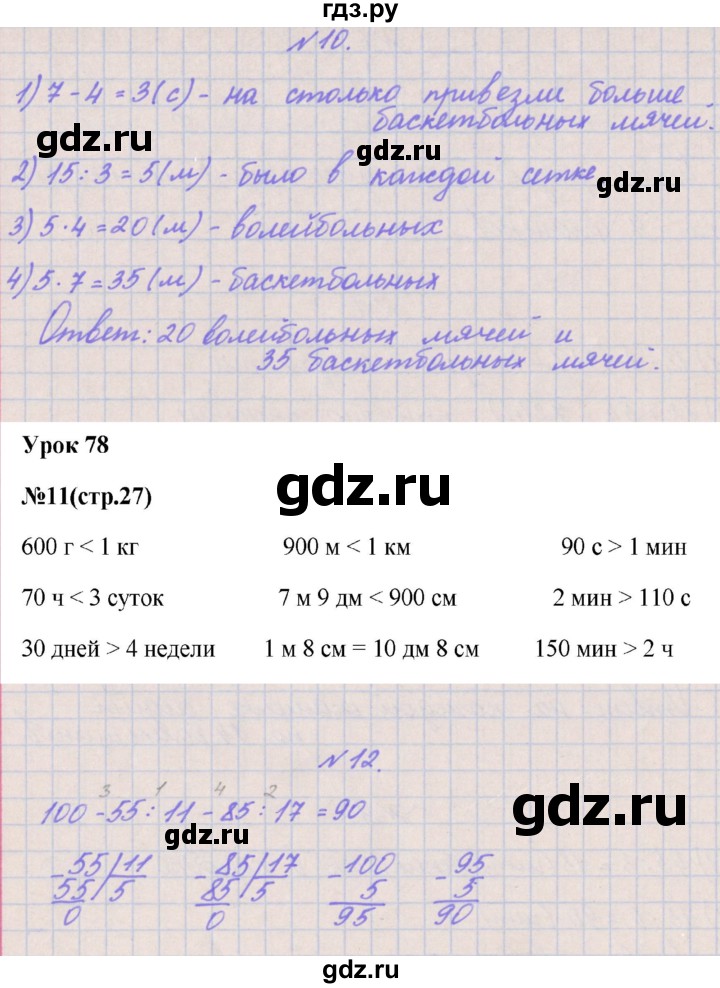 гдз.ру
№10.
1) 7 - 4 = 3 (с) - на столько привезли больше
баскетбольных мячей.
gdz.ru
gdz.ru
2) 15 : 3 = 5 (м) - было в каждой сетке
gdz.ru
3) 5 · 4 = 20 (м) - волейбольных
4) 5 · 7 = 35 (м) - баскетбольных
Ответ: 20 волейбольных мячей и
35 баскетбольных мячей.
Урок 78
№11(стр.27)
gdz.ru
600 г < 1 кг 900 м < 1 км 90 с > 1 мин
70 ч < 3 суток 7 м 9 дм < 900 см 2 мин > 110 с
30 дней > 4 недели 1 м 8 см = 10 дм 8 см 150 мин > 2 ч
№12.
3 1 4 2
100 - 55 : 11 - 85 : 17 = 90
gdz.ru
gdz.ru
- 55 | 11 - 85 | 17 - 100 - 95
55 | 5 85 | 5 5 5
0 0 95 90
gdz.ru